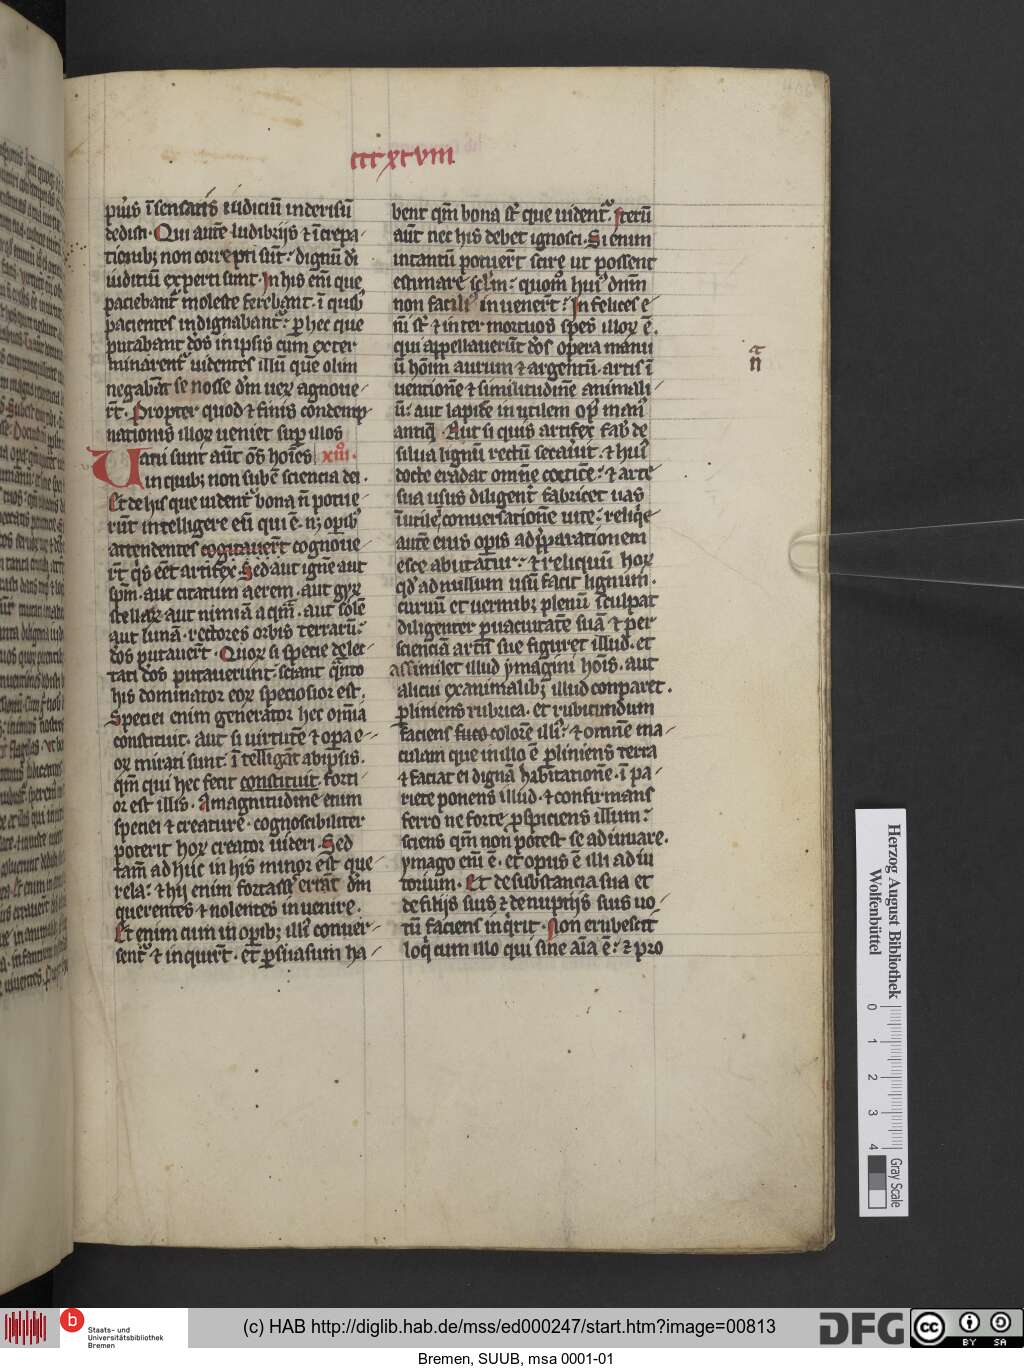 cccxcviii
pueris ĩsensatis iudiciũ in derisũ
dedisti. Qui autẽ ludibrijs ⁊ ĩcrepa-
tiõib; non correpti sũt: dignũ dĩ
iudiciũ experti sunt. In his eñi que
paciebant̃ moleste ferebant. ĩ quib᷒
pacientes indignabant̃: ꝑ hec que
putabant dõs in ipsis cum exter
minarent᷑ uidentes illũ que olim
negabãt se nosse dm̃ ueꝝ agnoue-
rr̃t. Propter quod ⁊ finis condemp-
nationis illoꝝ ueniet suꝑ illos
Uani sunt aũt oẽs hoĩes xiii.
in quib; non subẽ sciencia dei.
Et de his que uident᷑ bona ñ potue-
rũt intelligere eũ qui ẽ. n; opib᷒
attendentes cogitauer̃t cognoue-
rr̃t qͥs eẽt artifex Sed aut ignẽ aut
spm̃. aut citatum aerem. aut gyꝝ
stellaꝝ aut nimiã aqm̃. aut solẽ
aut lunã. rectores orbis terrarũ:
dõs putauer̃t. Quoꝝ si specie delec-
tati dõs putauerunt. sciant qͣnto
his dominator eoꝝ speciosior est.
Speciei enim generator hec om̃ia
constituit. aut si uirtutẽ ⁊ opa e-
oꝝ mirati sunt. ĩtelligãt ab ipsis.
qm̃ qui hec fecit constituit. forti-
or est illis. A magnitudine enim
speciei ⁊ creature. cognoscibiliter
poterit hoꝝ creator uideri. Sed
tam̃ adhuc in his minor est que-
rela: ⁊ hij enim fortassẽ errãt dm̃
querentes ⁊ nolentes inuenire.
Et enim cum in oꝑib; illi᷒ conuer-
sent᷑ ⁊ inquirt̃. et ꝑsuasum ha-
bent qm̃ bona st̃ que uident᷑. Iterũ
aũt nec his debet ignosci. Si enim
in tantũ potuer̃t scire ut possent
estimare sclm̃: quom̃ hui᷒ dnm̃
non facili᷒ inuener̃t: Infelices e-
m̃ st̃ ⁊ inter mortuos spes illoꝝ ẽ.
qui appellauerũt dõs opera manu
ũ hoĩm aurum ⁊ argentũ. artis ĩ
uentionẽ ⁊ similitudinẽ animali-
ũ: aut lapidẽ inutilem op᷒ man᷒
antiq̃. Aut si quis artifex fab᷑ de
silua lignũ rectũ secauit. ⁊ hui᷒
docte eradat omnẽ corticẽ: ⁊ arte
sua usus diligent᷑ fabricet uas
ĩutile conuersationẽ uite: reliq̃e
autẽ eius oꝑis ad p̃parationem
esce abutatur: ⁊ reliquũ hoꝝ
qd̃ ad nullum usũ facit lignum.
curuũ et uertib; plenũ sculpat
diligenter ꝑ uacuitatẽ suã ⁊ per
scienciã artis sue figuret illud. et
assimilet illud ymagini hoĩs. aut
alicui ex animalib; illud conparet.
ꝑliniens rubrica. et rubicundum
faciens fuco colorẽ illi᷒: ⁊ omnẽ ma-
culam que in illo ẽ ꝑliniens terra
⁊ faciat ei dignã habitationẽ. ĩ pa-
riete ponens illud. ⁊ confirmans
ferro ne forte ꝓspiciens illum:
sciens qm̃ non potest se adiuuare.
ymago eñi ẽ. et opus ẽ illi adiu
torium. Et de substancia sua et
de filijs suis ⁊ de nuptijs suis uo-
tũ faciens inqͥrit. Non erubescit
loqͥ cum illo qui sine aĩa ẽ: ⁊ pro
Herzog August Bibliothek
Wolfenbüttel
0 1 2 3 4
Gray Scale
b Staats- und
Universitätsbibliothek
Bremen
(c) HAB http://diglib.hab.de/mss/ed000247/start.htm?image=00813
DFG
cc BY SA
Bremen, SUUB, msa 0001-01